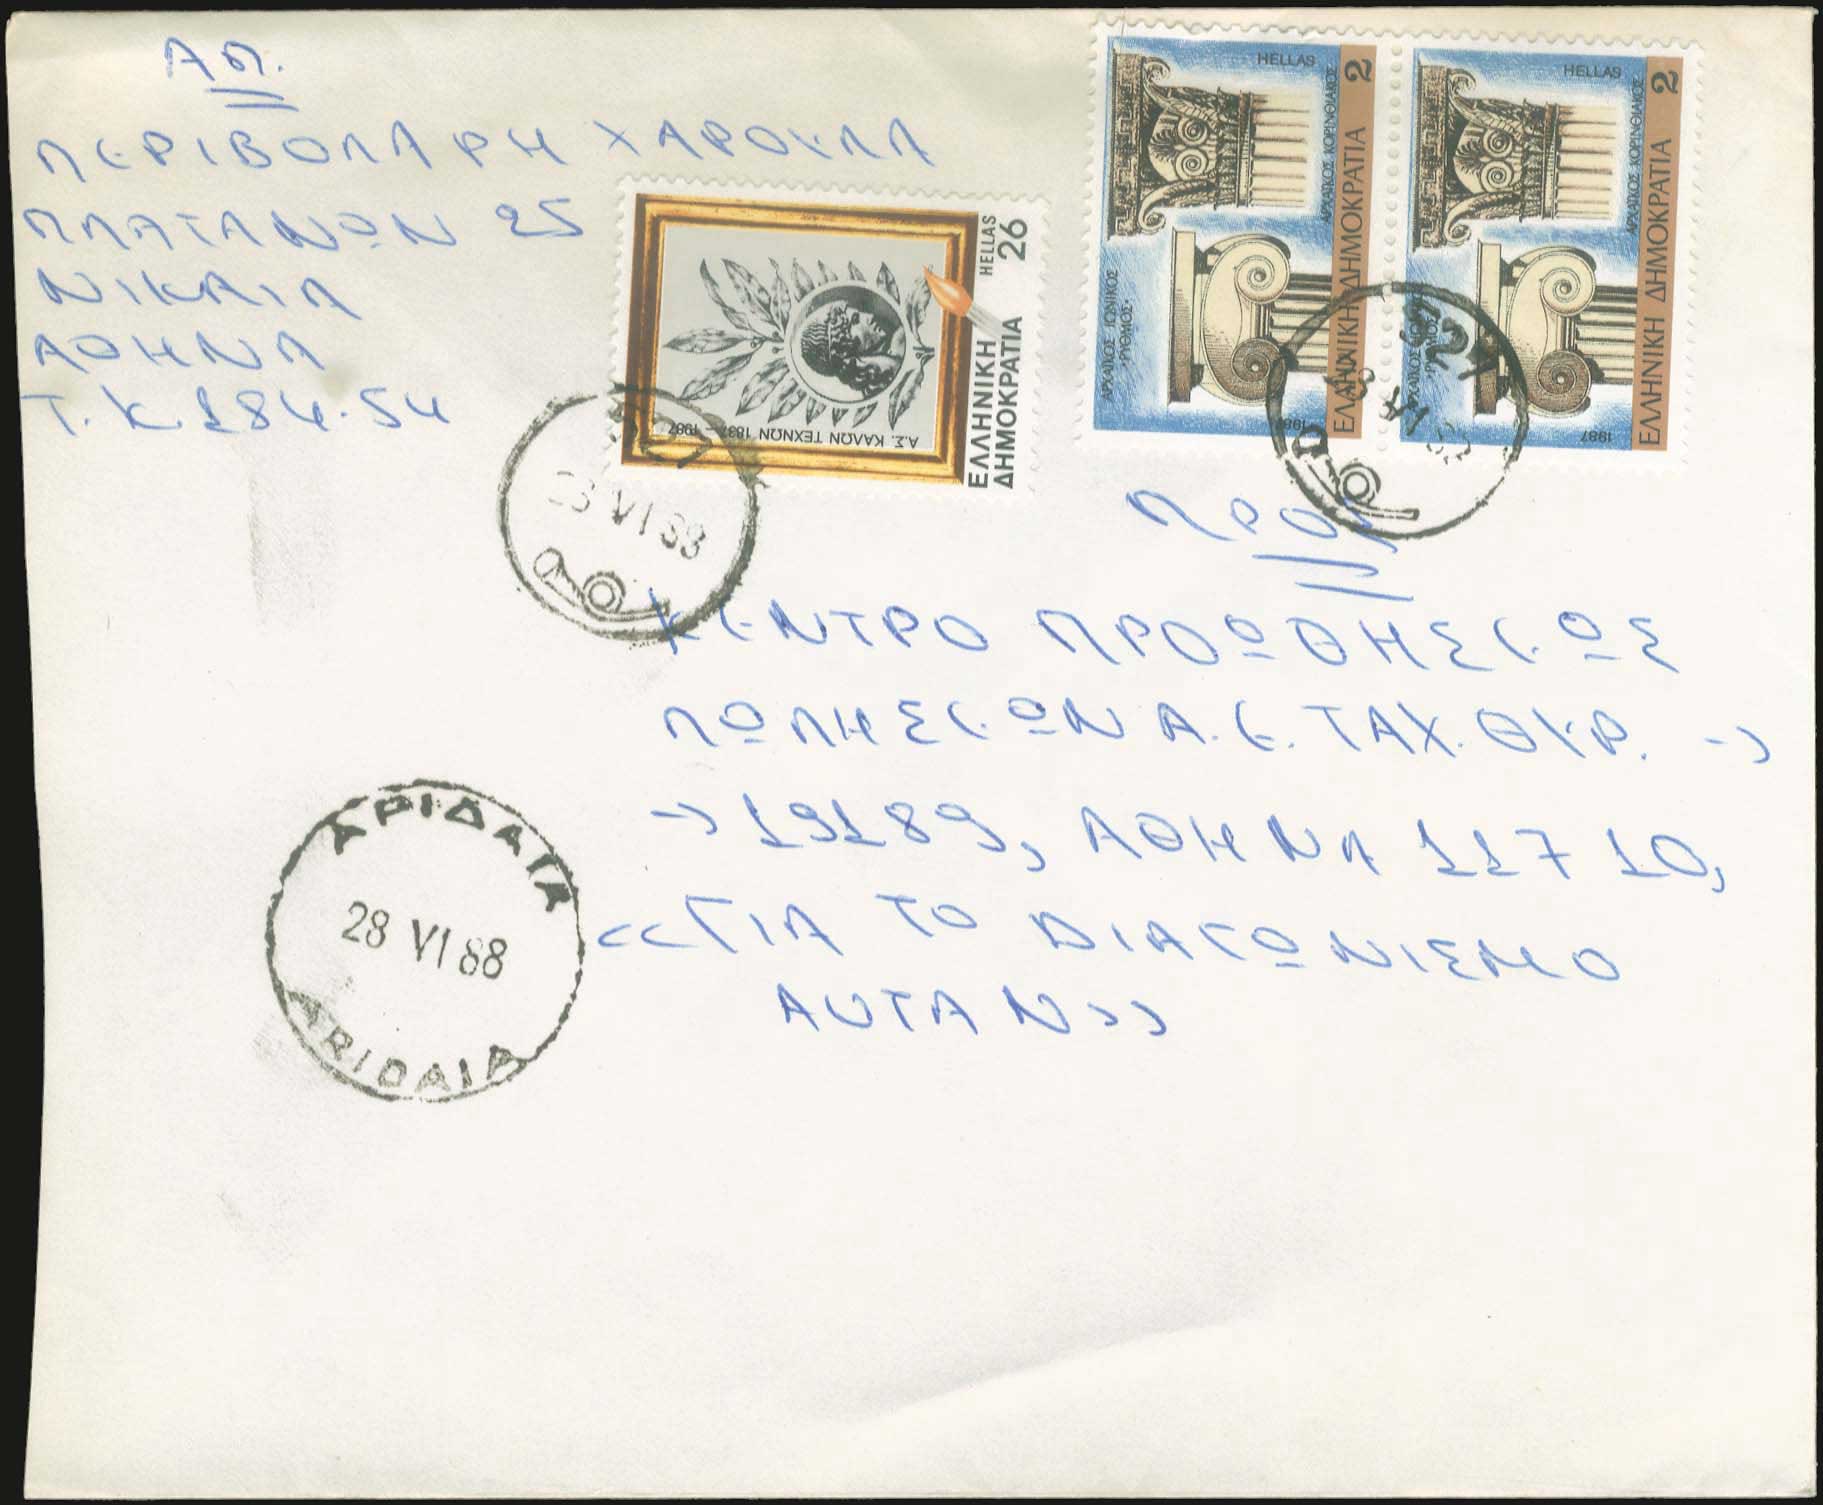 ΑΠ.
ΠΕΡΙΒΟΛΑΡΗ ΧΑΡΟΥΛΑ
ΠΛΑΤΑΝΩΝ 25
ΝΙΚΑΙΑ
ΑΘΗΝΑ
Τ.Κ. 184.54
HELLAS 26
ΕΛΛΗΝΙΚΗ
ΔΗΜΟΚΡΑΤΙΑ
Α.Σ. ΚΑΛΩΝ ΤΕΧΝΩΝ 1837-1987
HELLAS
2
ΕΛΛΗΝΙΚΗ ΔΗΜΟΚΡΑΤΙΑ
ΑΡΧΑΙΟΣ ΚΟΡΙΝΘΙΑΚΟΣ
ΑΡΧΑΙΟΣ ΙΩΝΙΚΟΣ
•ΡΥΘΜΟΣ•
1987
HELLAS
2
ΕΛΛΗΝΙΚΗ ΔΗΜΟΚΡΑΤΙΑ
ΑΡΧΑΙΟΣ ΚΟΡΙΝΘΙΑΚΟΣ
1987
VI 88
ΠΡΟΣ
ΚΕΝΤΡΟ ΠΡΟΩΘΗΣΕΩΣ
ΠΩΛΗΣΕΩΝ Α.Ε. ΤΑΧ. ΘΥΡ. ->
-> 19189, ΑΘΗΝΑ 117 10,
<<ΓΙΑ ΤΟ ΔΙΑΓΩΝΙΣΜΟ
AUTAN>>
ΑΡΙΔΑΙΑ
28 VI 88
ARIDAIA